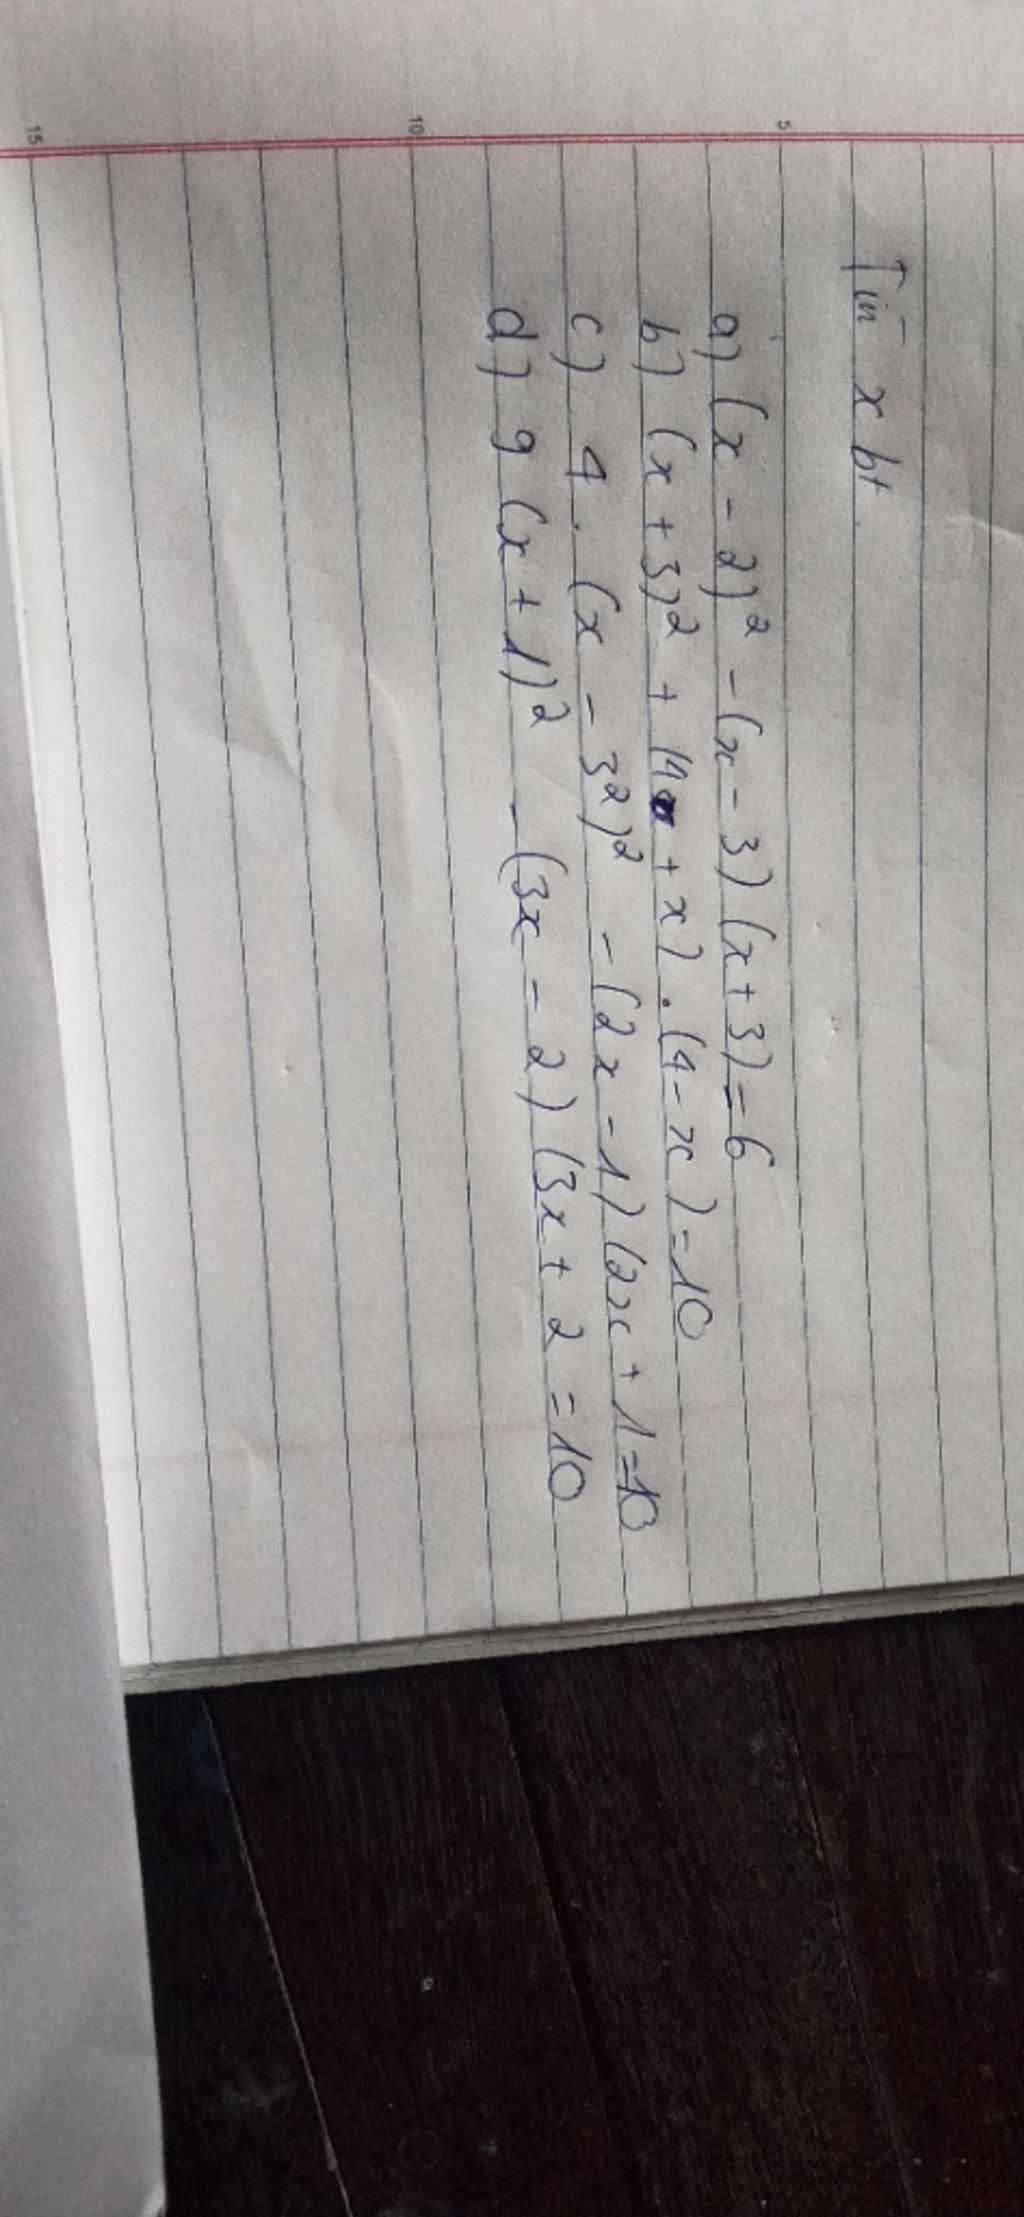 Tìm x bt
a) (x - 2)² - (x - 3) (x + 3) = 6
b) (x + 3)² + (4 + x) . (4 - x) = 10
c) 4 . (x - 3²)² - (2x - 1) (2x + 1 = 10
d) 9 (x + 1)² - (3x - 2) (3x + 2 = 10
5
10
15